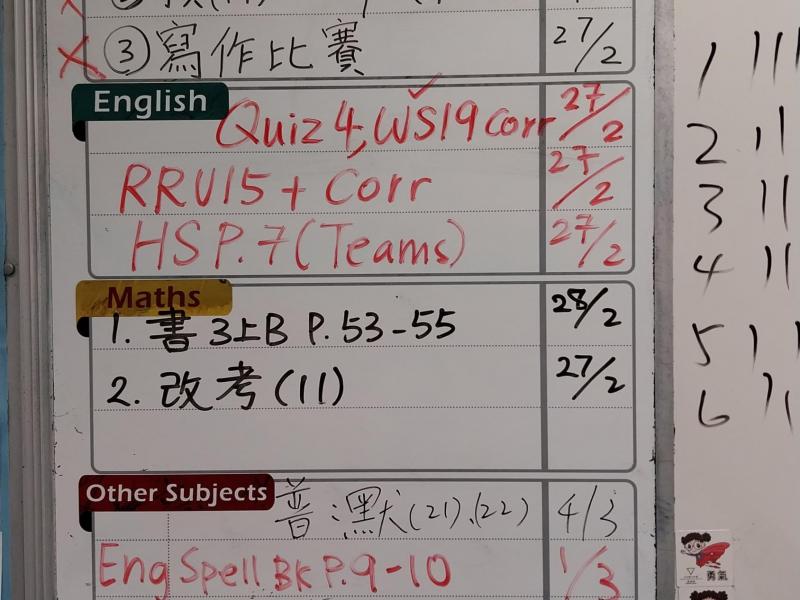 ③寫作比賽 27/2
English
Quiz 4, WS19 Corr 27/2
RRU15 + Corr 27/2
HS P.7 (Teams) 27/2
Maths
1. 書 3上B P. 53-55 28/2
2. 改考(11) 27/2
Other Subjects
普 默(21)、(22) 4/3
Eng Spell BK P.9-10 1/3
1
2
3
4
5
6
勇氣